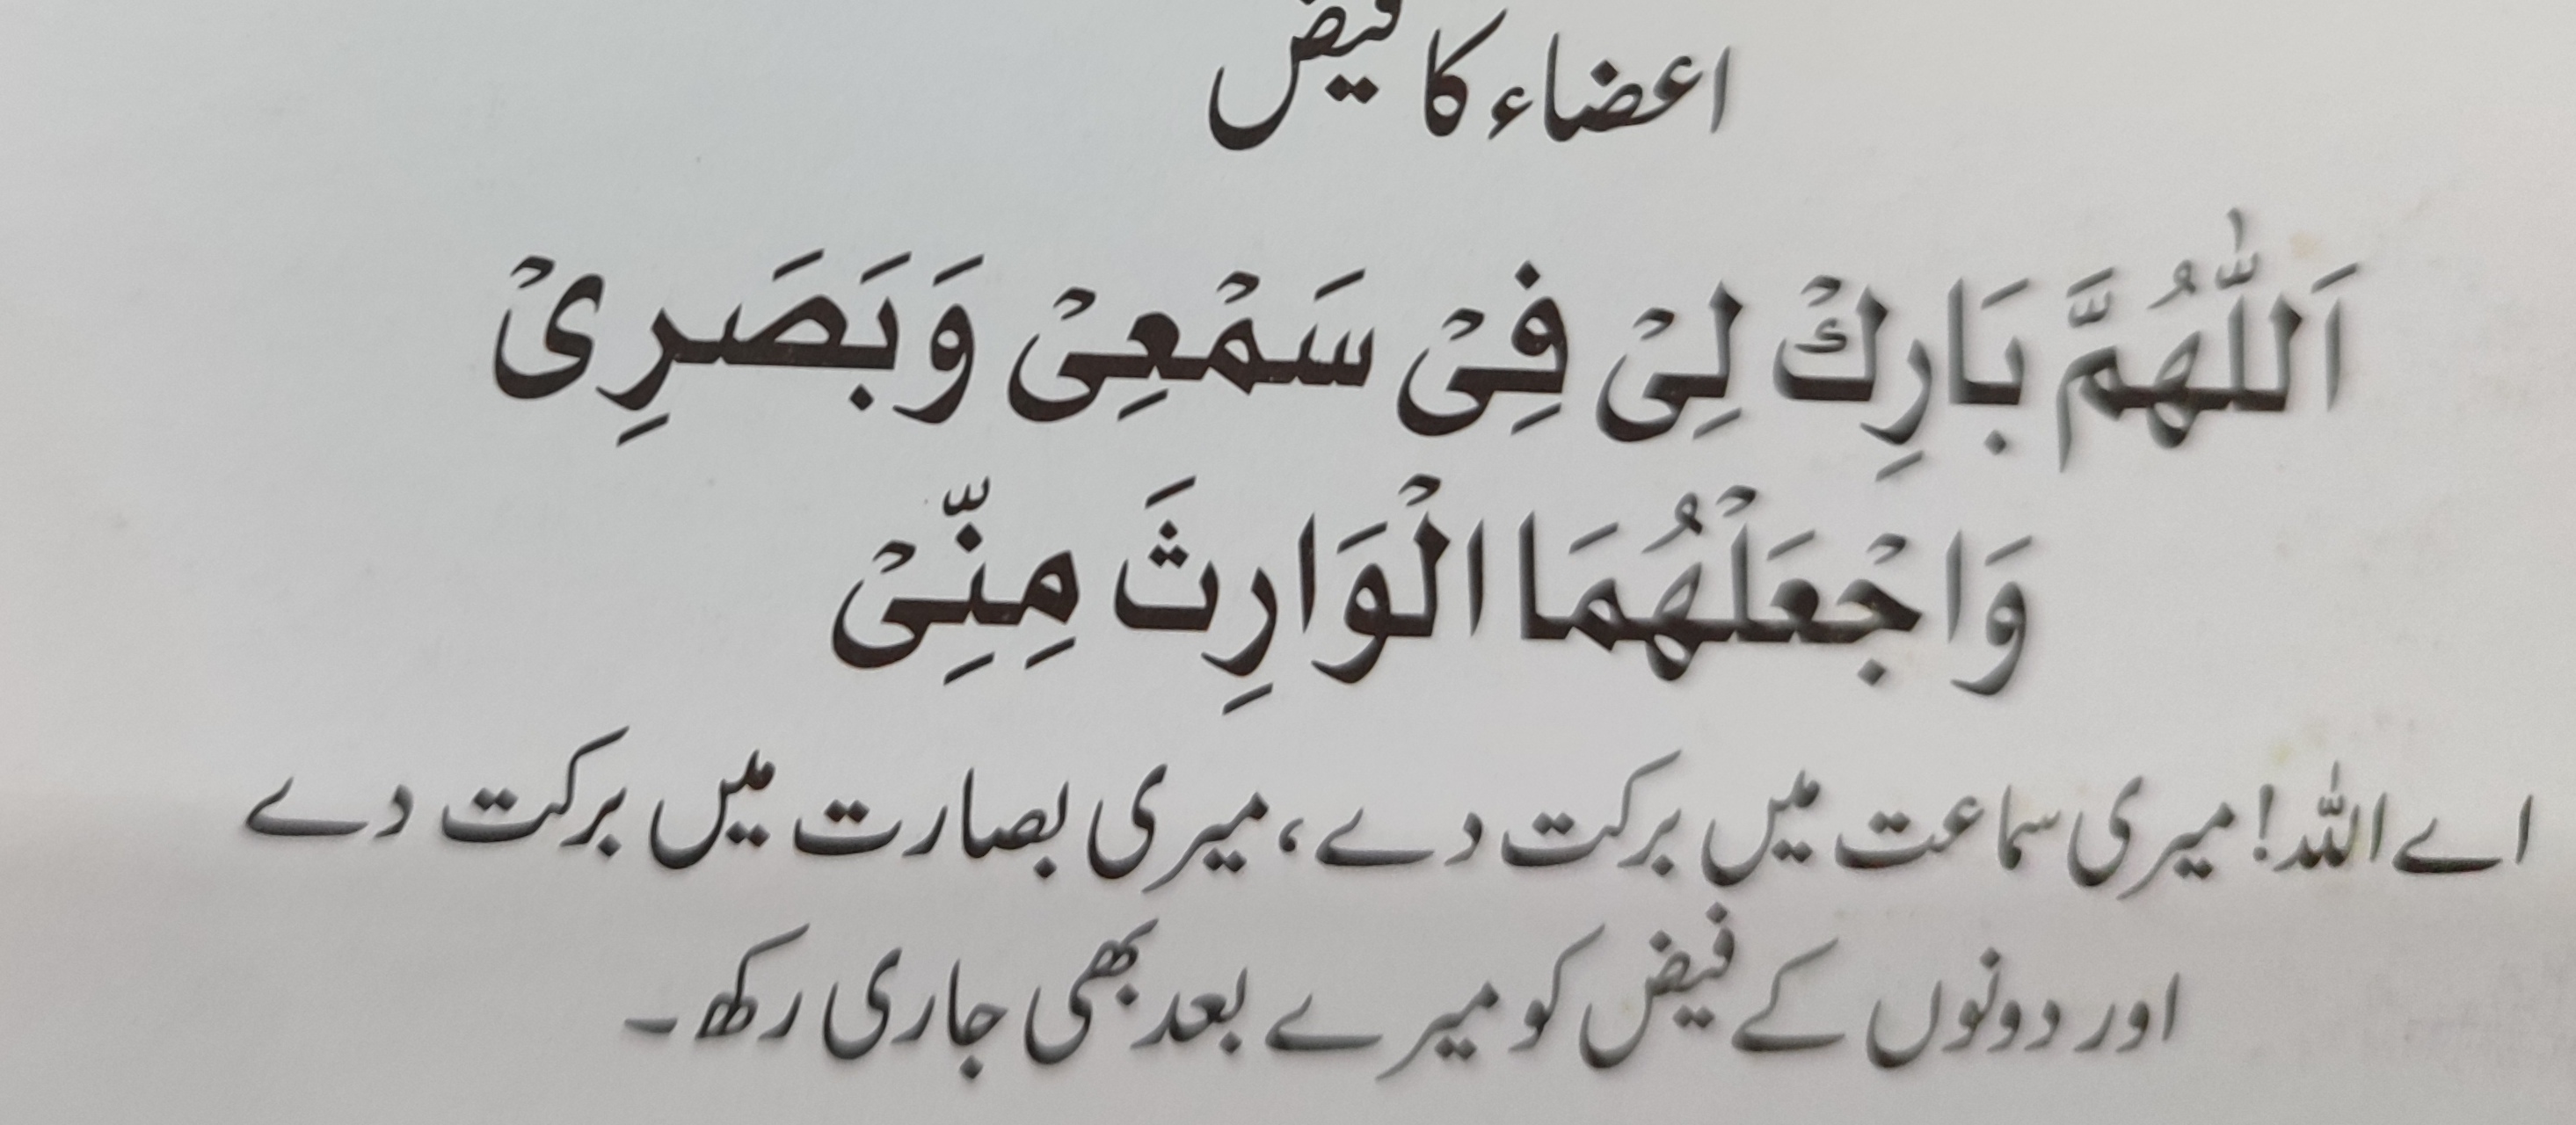 اعضاء کا فیض
اَللّٰهُمَّ بَارِكْ لِیْ فِیْ سَمْعِیْ وَبَصَرِیْ
وَاجْعَلْهُمَا الْوَارِثَ مِنِّیْ
اے اللہ! میری سماعت میں برکت دے، میری بصارت میں برکت دے
اور دونوں کے فیض کو میرے بعد بھی جاری رکھ۔